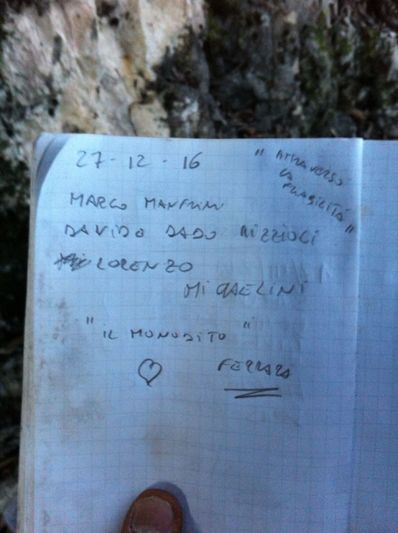 27-12-16
"ATTRAVERSO
LA
FRAGILITÀ"
MARCO MANFRINI
DAVIDE DADO RIZZIOLI
LORENZO
MICHELINI
"IL MONODITO"
FERRARA